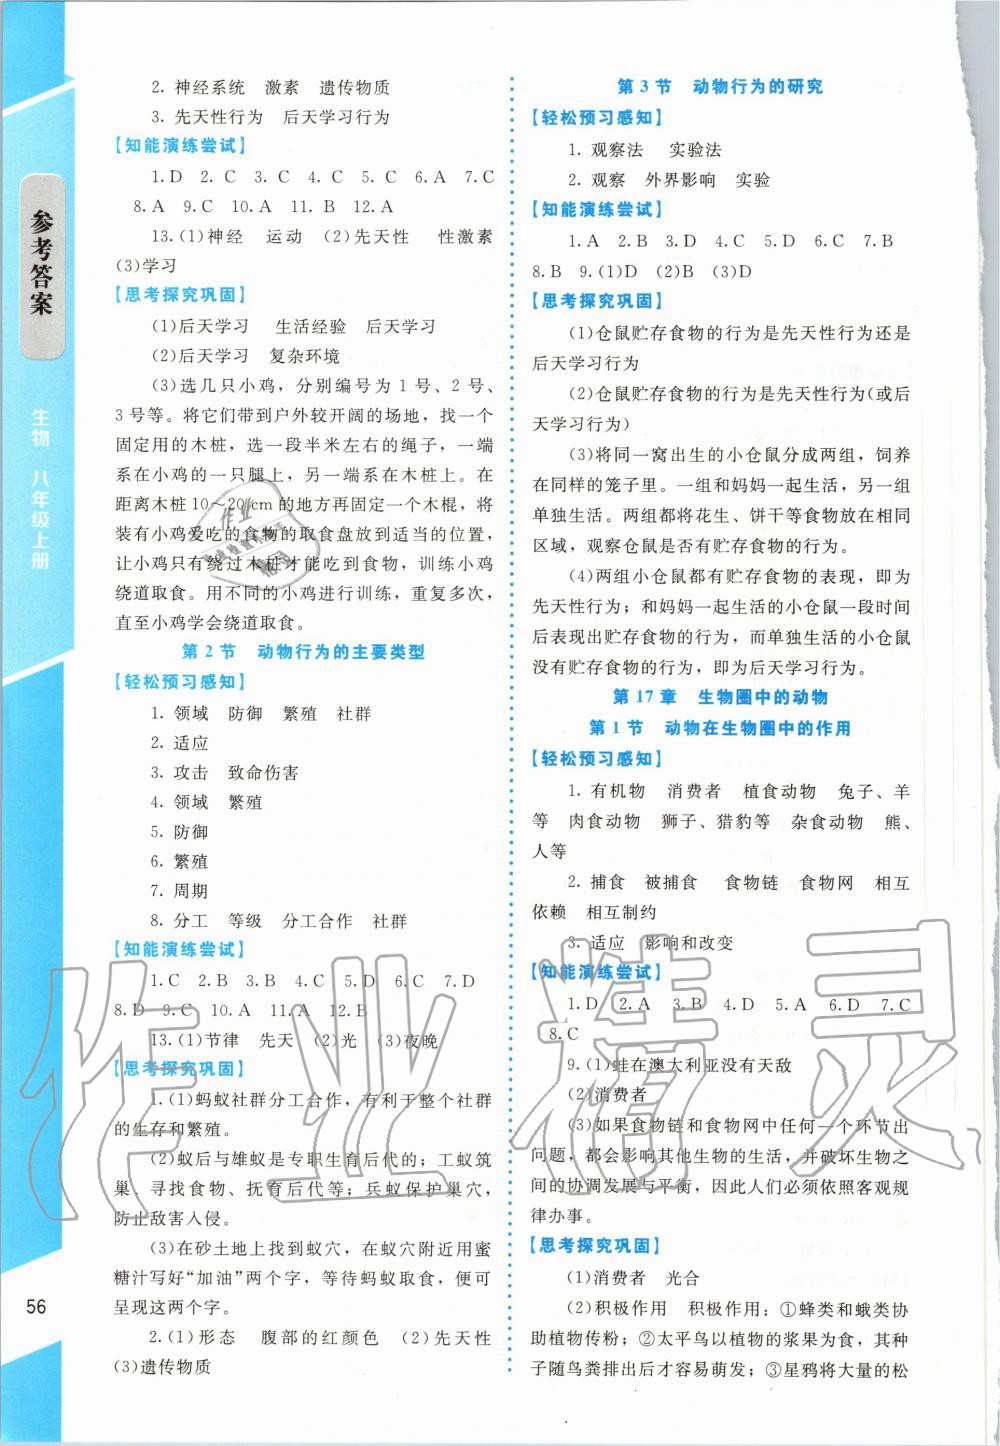 参考答案
生物 八年级上册
56
2. 神经系统 激素 遗传物质
3. 先天性行为 后天学习行为
【知能演练尝试】
1.D 2.C 3.C 4.C 5.C 6.A 7.C
8.A 9.C 10.A 11.B 12.A
13.(1)神经 运动 (2)先天性 性激素
(3)学习
【思考探究巩固】
(1)后天学习 生活经验 后天学习
(2)后天学习 复杂环境
(3)选几只小鸡，分别编号为1号、2号、
3号等。将它们带到户外较开阔的场地，找一个
固定用的木桩，选一段半米左右的绳子，一端
系在小鸡的一只腿上，另一端系在木桩上。在
距离木桩10～20 cm的地方再固定一个木棍，将
装有小鸡爱吃的食物的取食盘放到适当的位置，
让小鸡只有绕过木桩才能吃到食物，训练小鸡
绕道取食。用不同的小鸡进行训练，重复多次，
直至小鸡学会绕道取食。
第2节 动物行为的主要类型
【轻松预习感知】
1. 领域 防御 繁殖 社群
2. 适应
3. 攻击 致命伤害
4. 领域 繁殖
5. 防御
6. 繁殖
7. 周期
8. 分工 等级 分工合作 社群
【知能演练尝试】
1.C 2.B 3.B 4.C 5.C 6.C 7.D
8.D 9.C 10.A 11.A 12.B
13.(1)节律 先天 (2)光 (3)夜晚
【思考探究巩固】
1.(1)蚂蚁社群分工合作，有利于整个社群
的生存和繁殖。
(2)蚁后与雄蚁是专职生育后代的；工蚁筑
巢、寻找食物、抚育后代等；兵蚁保护巢穴，
防止敌害入侵。
(3)在砂土地上找到蚁穴，在蚁穴附近用蜜
糖汁写好“加油”两个字，等待蚂蚁取食，便可
呈现这两个字。
2.(1)形态 腹部的红颜色 (2)先天性
(3)遗传物质
第3节 动物行为的研究
【轻松预习感知】
1. 观察法 实验法
2. 观察 外界影响 实验
【知能演练尝试】
1.A 2.B 3.D 4.C 5.D 6.C 7.B
8.B 9.(1)D (2)A (3)D
【思考探究巩固】
(1)仓鼠贮存食物的行为是先天性行为还是
后天学习行为
(2)仓鼠贮存食物的行为是先天性行为(或后
天学习行为)
(3)将同一窝出生的小仓鼠分成两组，饲养
在同样的笼子里。一组和妈妈一起生活，另一组
单独生活。两组同时将花生、饼干等食物放在相同
区域，观察仓鼠是否有贮存食物的行为。
(4)两组小仓鼠都有贮存食物的表现，即为
先天性行为；和妈妈一起生活的小仓鼠一段时间
后表现出贮存食物的行为，而单独生活的小仓鼠
没有贮存食物的行为，即为后天学习行为。
第17章 生物圈中的动物
第1节 动物在生物圈中的作用
【轻松预习感知】
1. 有机物 消费者 植食动物 兔子、羊
等 肉食动物 狮子、猎豹等 杂食动物 熊、
人等
2. 捕食 被捕食 食物链 食物网 相互
依赖 相互制约
3. 适应 影响和改变
【知能演练尝试】
1.D 2.A 3.B 4.D 5.A 6.D 7.C
8.C
9.(1)蛙在澳大利亚没有天敌
(2)消费者
(3)如果食物链和食物网中任何一个环节出
问题，都会影响其他生物的生活，并破坏生物之
间的协调发展与平衡，因此人们必须依照客观规
律办事。
【思考探究巩固】
(1)消费者 光合
(2)积极作用 积极作用：①蜂类和蛾类协
助植物传粉；②太平鸟以植物的浆果为食，其种
子随鸟粪排出后才容易萌发；③星鸦将大量的松
作业精灵